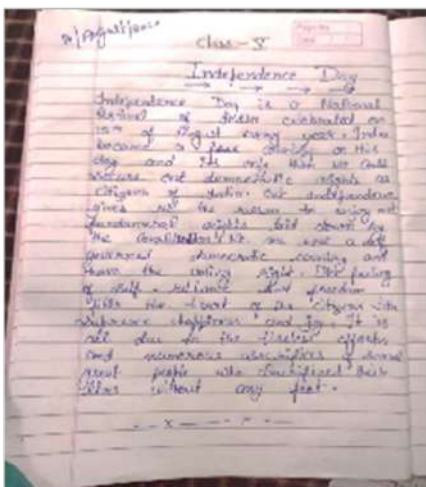 Class - V
Independence Day
Independence Day is a National
festival of celebrated on
15th of August every year. India
became a free country on this
day and its only then we could
secure our democratic rights as
citizens of India. Our independence
gives us the reason to enjoy
fundamental rights laid down by
the we are a self
governed democratic country and
have the voting right. The feeling
of self - reliance and freedom
fills the heart of the citizens with
supreme happiness and joy. It is
all due to the tireless efforts
and numerous sacrifices of
great people who sacrificed their
lives without any fear.